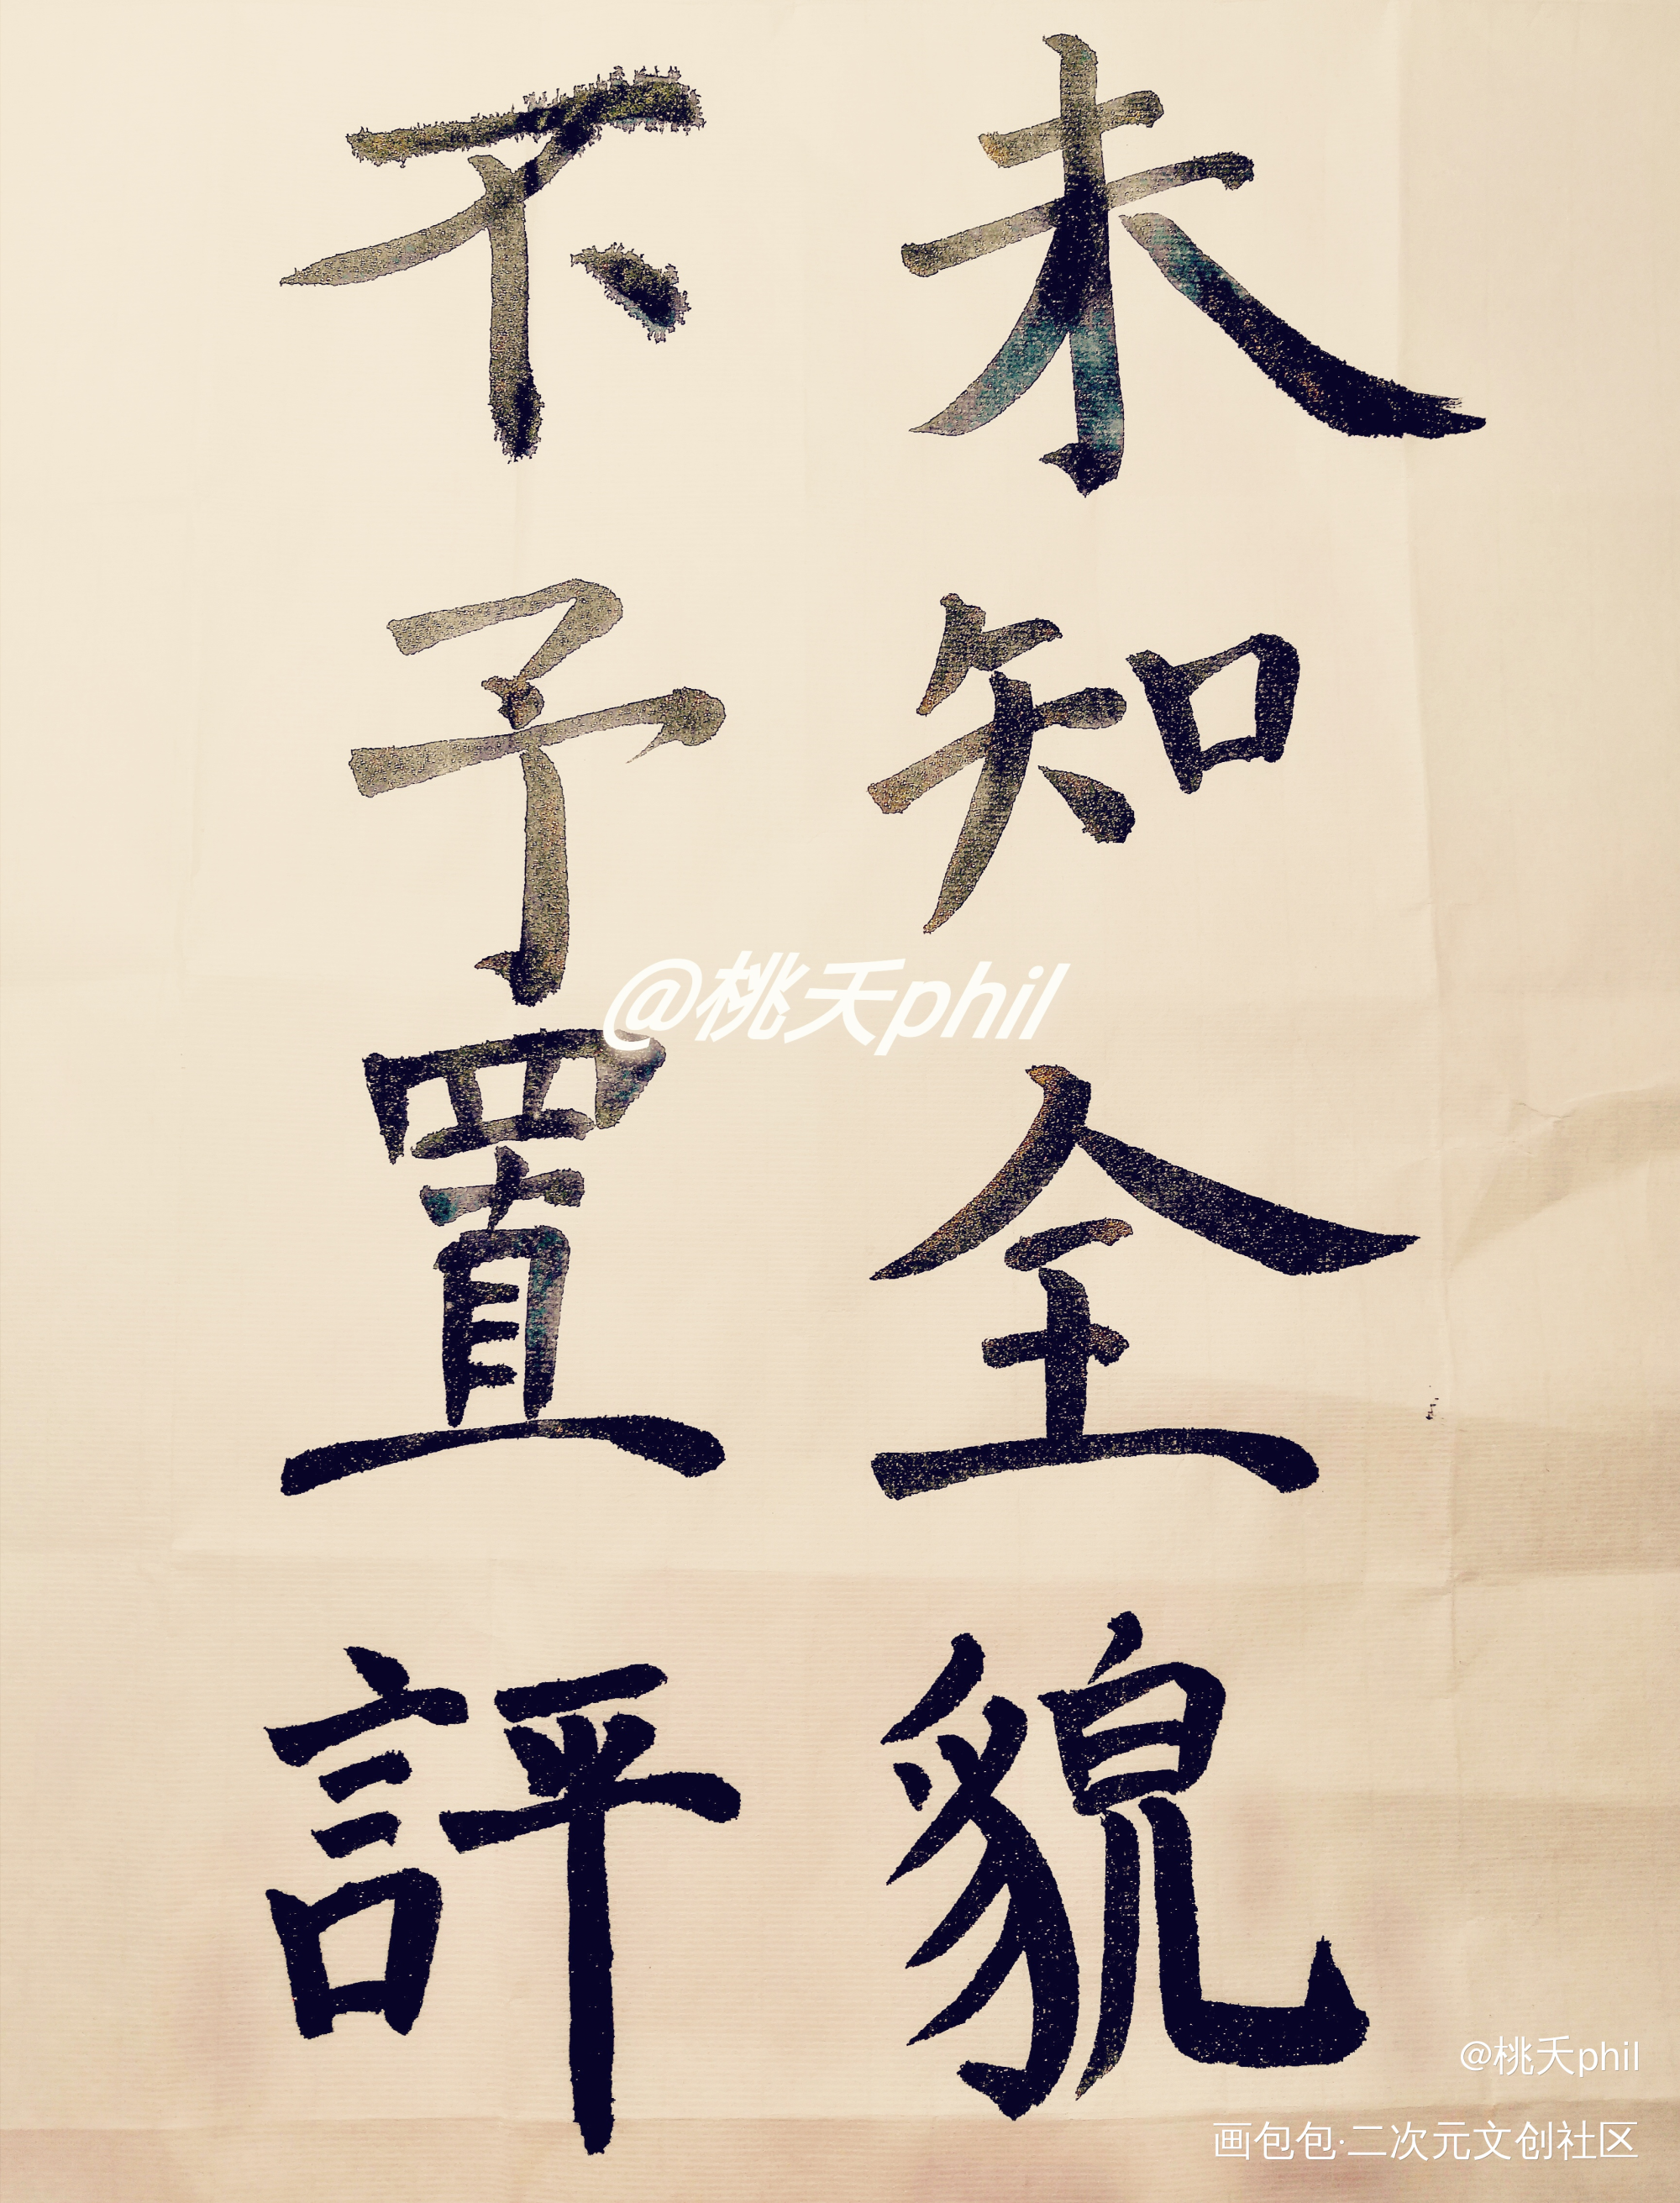 未知全貌
不予置評
@桃夭phil
@桃夭phil
画包包·二次元文创社区